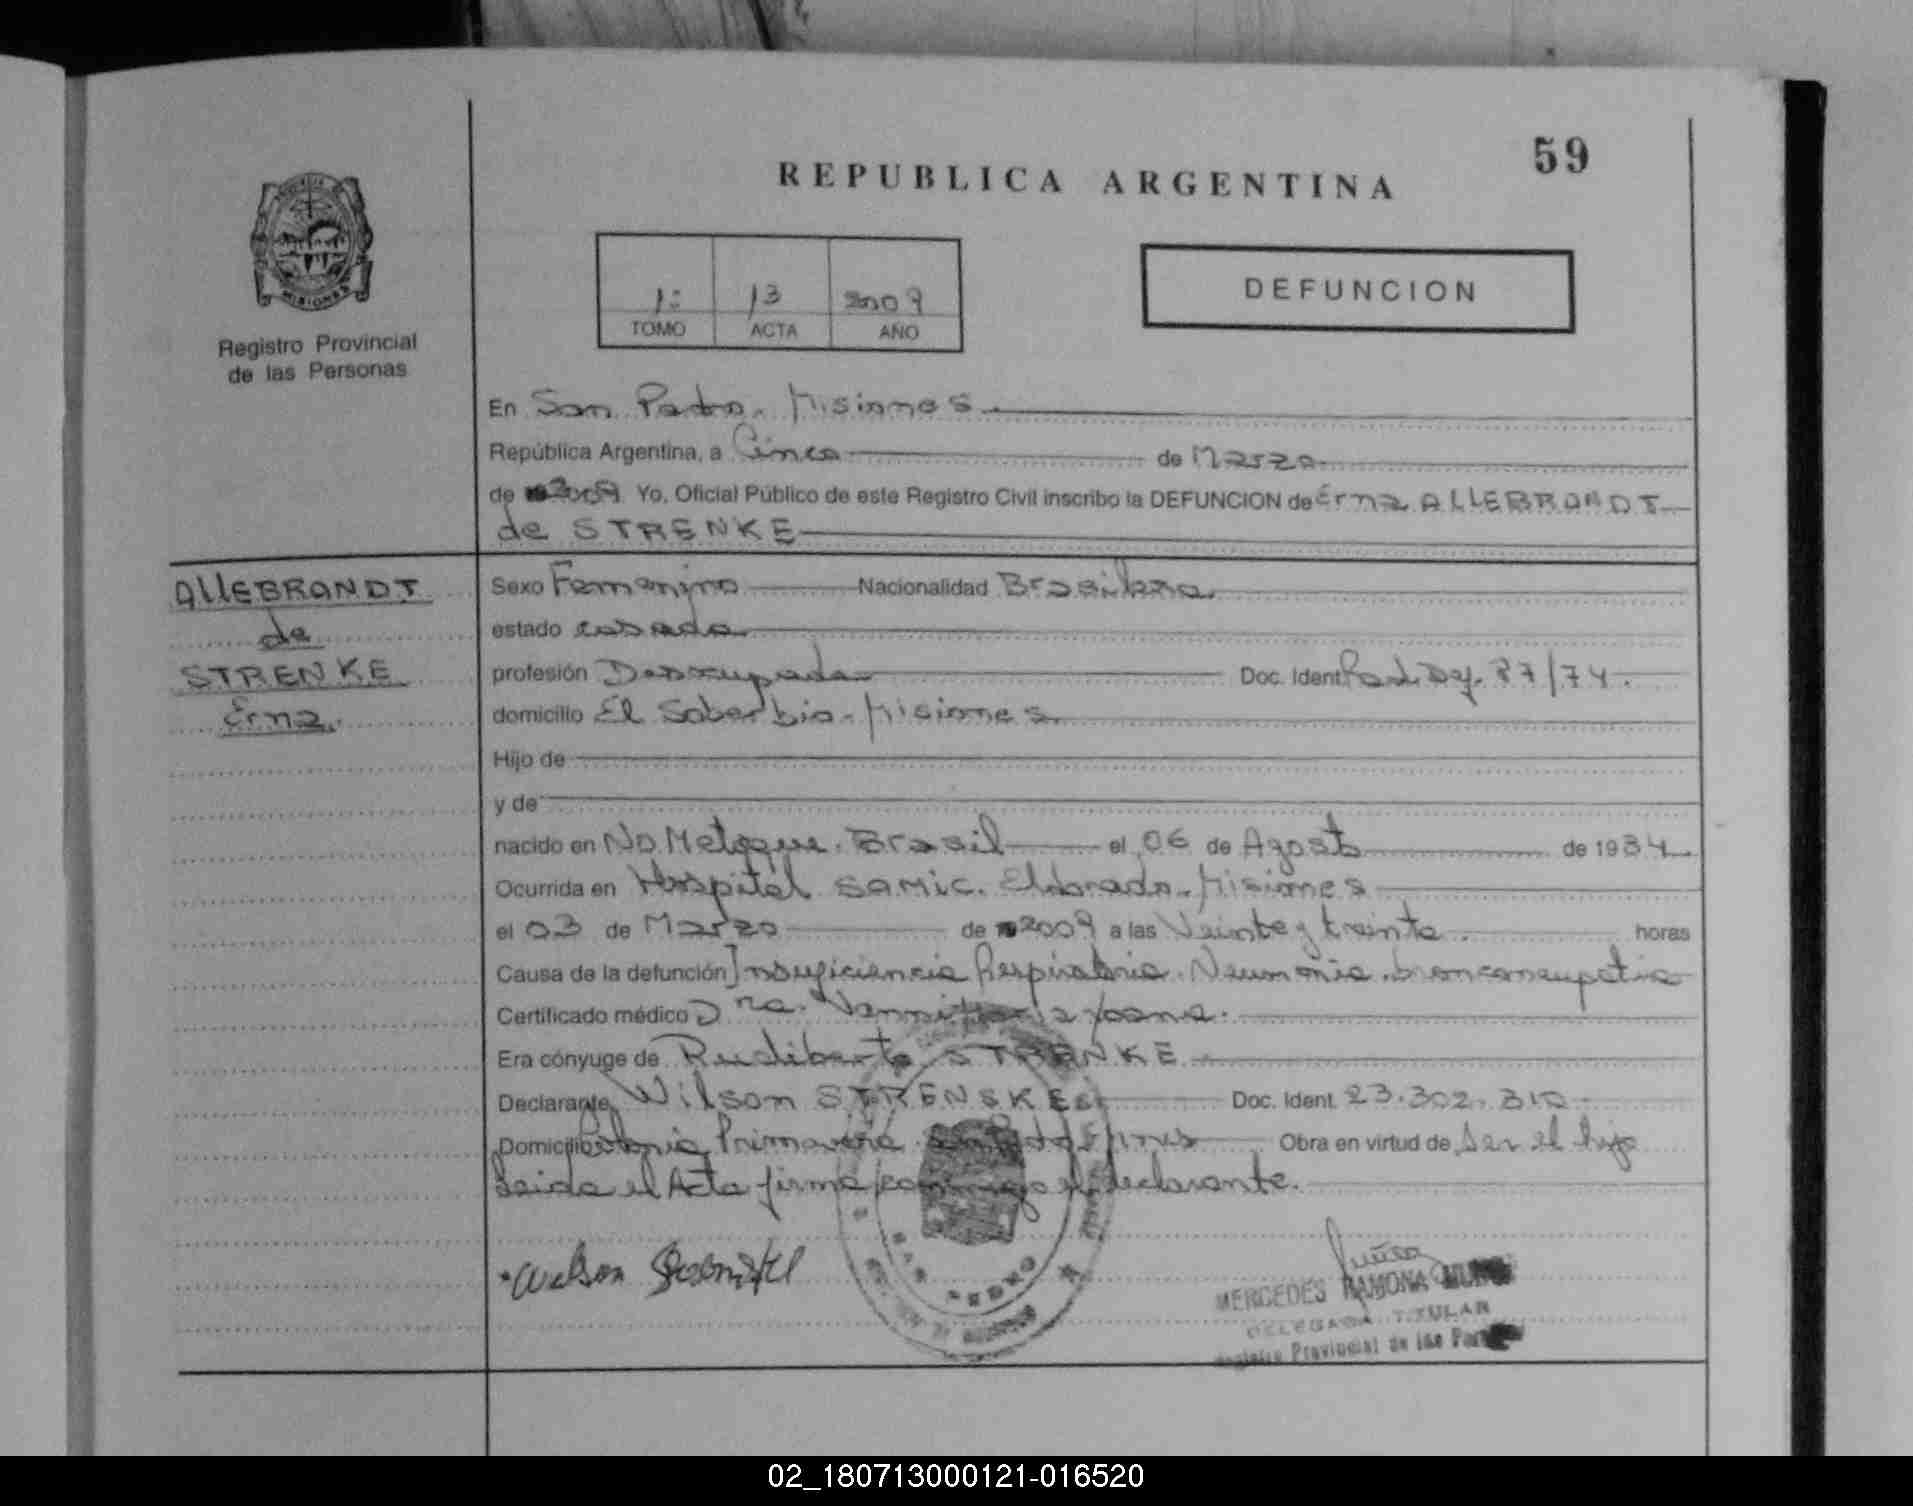 59
REPUBLICA ARGENTINA
MISIONES
Registro Provincial
de las Personas
1: 13 2009
TOMO ACTA AÑO
DEFUNCION
En San Pedro. Misiones
República Argentina, a Cinco de Marzo
de 2009 Yo, Oficial Público de este Registro Civil inscribo la DEFUNCION de Erna ALLEBRANDT
de STRENKE
ALLEBRANDT
de
STRENKE
Erna.
Sexo Femenino Nacionalidad Brasilera.
estado casada
profesión Desocupada Doc. Ident. 87/74.
domicilio El Soberbio. Misiones
Hijo de
y de
nacido en Brasil el 06 de Agosto de 1934
Ocurrida en Hospital SAMIC. Eldorado. Misiones
el 03 de Marzo de 2009 a las Veinte y treinta horas
Causa de la defunción Insuficiencia Respiratoria. Neumonia.
Certificado médico Dra.
Era cónyuge de Rudiberto STRENKE
Declarante Wilson STRENSKE Doc. Ident. 23.302.310
Domicilio Colonia Primavera. Obra en virtud de Ser el hijo
Leida el Acta firma conmigo el declarante.
Wilson
MERCEDES RAMONA
DELEGADA TITULAR
Registro Provincial de las
02_180713000121-016520